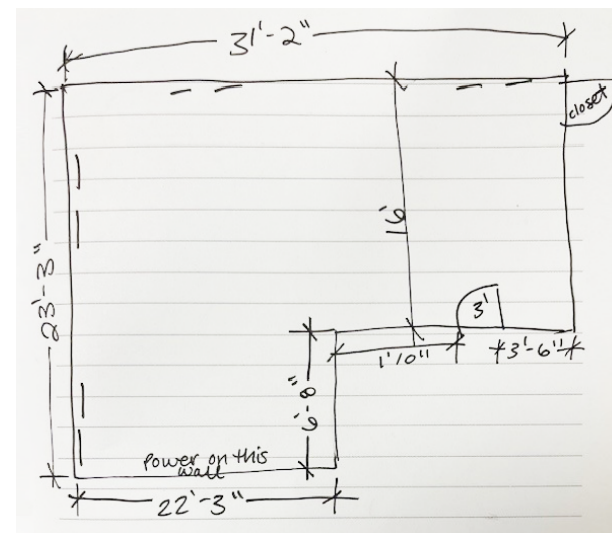 31'-2"
closet
23'-3"
16'
3'
1'10"
3'-6"
6'-8"
Power on this
wall
22'-3"